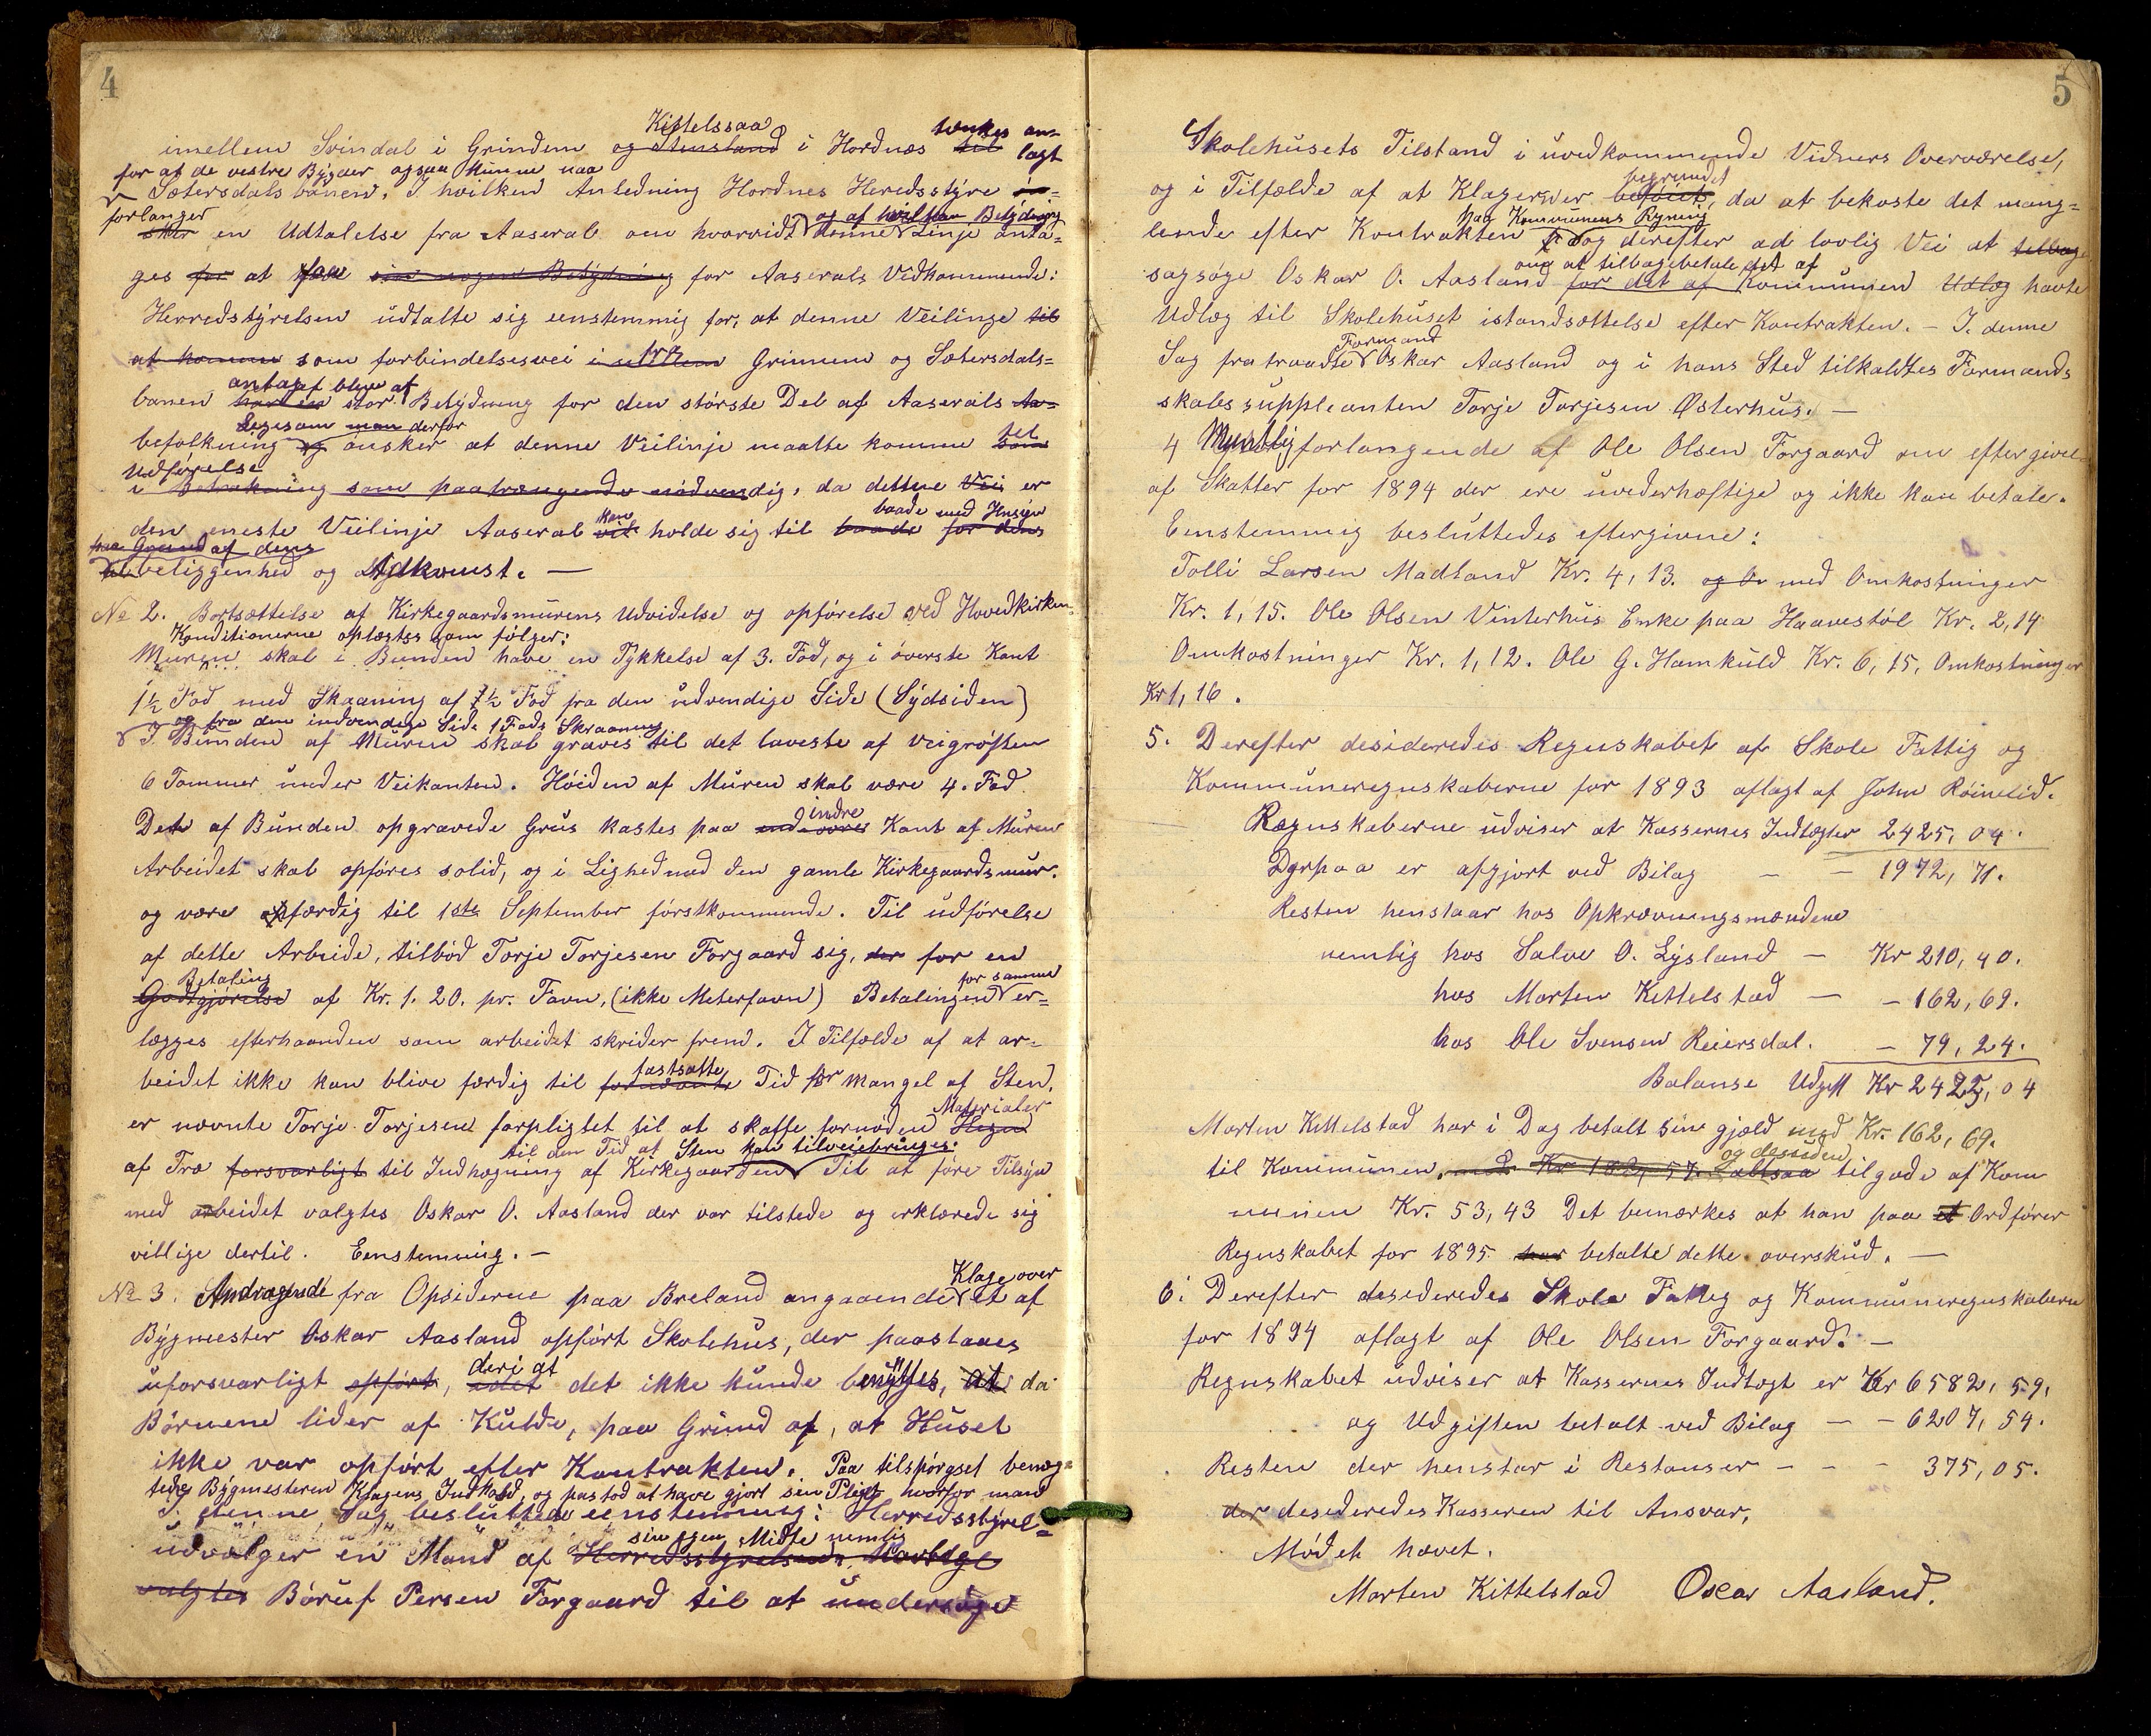 4
Kittelssaa tænkes an-
imellem Svindal i Grindem og Stensland i Hordnæs til lagt
for at de vestre Bygder ogsaa kunne naa
Sætersdalsbanen. I hvilken Anledning Hordnes Heredsstyre
forlanger og af hvilken Betydning
en Udtalelse fra Aaseral om hvorvidt denne Linje anta-
ges for at faa sin nogen Betydning for Aaserals Vedkommende:
Herredsstyrelsen udtalte sig eenstemmig for, at denne Veilinge til
at komme som forbindelsesvei i mellem Grimum og Sætersdals-
banen har en stor Betydning for den største Del af Aaserals
Ligesom man derfor
befolkning og ønsker at denne Veilinje maatte komme til
Udførelse
i Betrakning som paatrængende nødvendig, da dettne Vei er
kan baade med Hensyn
den eneste Veilinje Aaseral vil holde sig til baade for dens
paa Grund af dens
beliggenhed og Adkomst. —
No 2. Bortsættelse af Kirkegaardsmurens Udvidelse og opførelse ved Hovedkirken
Konditionerne oplæstes som følger:
Muren skal i Bunden have en Tykkelse af 3. Fod, og i øverste Kant
1½ Fod med Skraaning af ½ Fod fra den udvendige Side (Sydsiden)
og fra den indvendige Side 1 Fods Skraaning
I Bunden af Muren skal graves til det laveste af veigrøften
6 Tommer under Veikanten. Høiden af Muren skal være 4. Fod.
indre
Dets af Bunden opgravede Grus kastes paa Kant af Muren
Arbeidet skal opføres solid, og i Lighed med den gamle Kirkegaardsmur.
og være færdig til 1ste September førstkommende. Til udførelse
af dette Arbeide, tilbød Torje Torjesen Forgaard sig, der for en
Betaling for samme
Godtgjørelse af Kr. 1. 20. pr. Favn, (ikke Meterfavn) Betalingen er-
lægges efterhaanden som arbeidet skrider frem. I Tilfælde af at ar-
fastsatte
beidet ikke kan blive færdig til fornævnte Tid for Mangel af Sten,
Materialer
er nævnte Torje Torjesen forpligtet til at skaffe fornøden Hegn
til den Tid at Sten kan tilveiebringes.
af Træ forsvarligt til Indhegning af Kirkegaarden Til at føre Tilsyn
med arbeidet valgtes Oskar O. Aasland der var tilstede og erklærede sig
villige dertil. Eenstemmig. —
Klage over
No 3. Andragende fra Opsiderne paa Breland angaaende et af
Bygmester Oskar Aasland opført Skolehus, der paastaaes
deri at
uforsvarligt opført, det ikke kunde benyttes, at da
Børnene lider af Kulde, paa Grund af, at Huset
ikke var opført efter Kontrakten. Paa tilspørgsel benæg-
tede Bygmesteren Klagens Indhold, og pastod at have gjort sin Pligt hvorfor man
I denne Sag besluttede eenstemmig: Herredsstyrel-
sin egen Midte nemlig
udvælger en Mand af Herredsstyrelsen
valgtes Børuf Persen Forgaard til at undersøge
5
Skolehusets Tilstand i uvedkommende Vidners Overværelse,
begrundet
og i Tilfælde af at Klagen er beføiet, da at bekoste det mang-
paa Kommunens Regning
lende efter Kontrakten og derefter ad lovlig Vei at tilbage
om at tilbagebetale det af
sagsøge Oskar O. Aasland for det af Kommunen Udlæg havte
Udlæg til Skolehuset istandsættelse efter Kontrakten. — I denne
Formand
Sag fratraadte Oskar Aasland og i hans Sted tilkaldtes Formands
skabssuppleanten Torje Torjesen Østerhus. —
4 Mundtlig forlangende af Ole Olsen Forgaard om eftergivel-
af Skatter for 1894 der ere uvederhæftige og ikke kan betale.
Eenstemmig besluttedes eftergivne:
Tolli Larsen Madland Kr. 4, 13. og O. med Omkostninger
Kr. 1, 15. Ole Olsen Vinterhus Enke paa Haavestøl Kr. 2, 14
Omkostninger Kr. 1, 12. Ole G. Hamkuld Kr. 6, 15, Omkostninger
Kr 1, 16.
5. Derefter desideredes Regnskabet af Skole Fattig og
Kommuneregnskaberne for 1893 aflagt af John Røinelid.
Regnskaberne udviser at Kassernes Indtægter 2425, 04.
Derpaa er afgjort ved Bilag — — 1972, 71.
Resten henstaar hos Opkrævningsmændene
nemlig hos Salve O. Lysland — Kr 210, 40.
hos Morten Kittelstad — — 162, 69.
hos Ole Svensen Reiersdal. — 79, 24.
Balanse Udgift Kr 2425, 04
Morten Kittelstad har i Dag betalt sin gjæld med Kr. 162, 69.
og dessuden
til Kommunen, med Kr altsaa tilgode af Kom
munen Kr. 53, 43 Det bemærkes at han paa et Ordfører
Regnskabet for 1895 har betalte dette overskud. —
6. Derefter desideredes Skole Fattig og Kommuneregnskabern
for 1894 aflagt af Ole Olsen Forgaard. —
Regnskabet udviser at Kassernes Indtægt er Kr 6582, 59,
og Udgiften betalt ved Bilag — — 6207, 54.
Resten der henstar i Restanser — — — 375, 05.
der desideredes Kasseren til Ansvar,
Mødet hævet.
Morten Kittelstad Oscar Aasland.